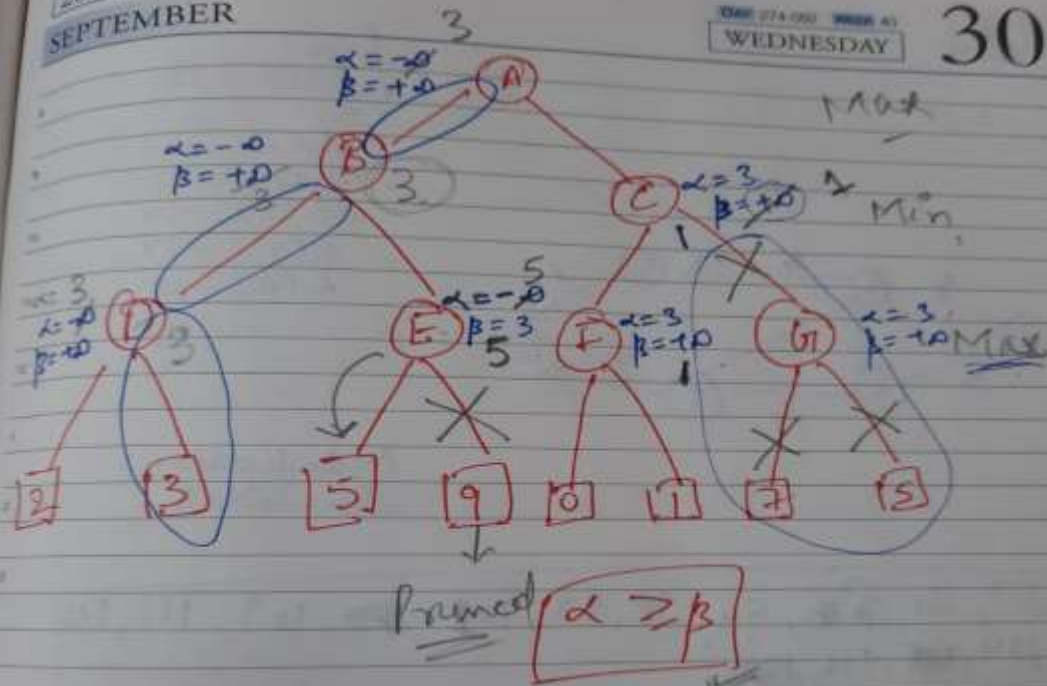 SEPTEMBER
WEDNESDAY
30
3
α = -∞
β = +∞
A
Max
α = -∞
β = +∞
3
B
3
C
α = 3
β = +∞
1
1
Min
α = 3
α = -∞
β = +∞
D
3
E
5
α = -∞
β = 3
5
F
α = 3
β = +∞
1
G
α = 3
β = +∞
Max
2
3
5
9
0
1
7
5
Pruned
α ≥ β